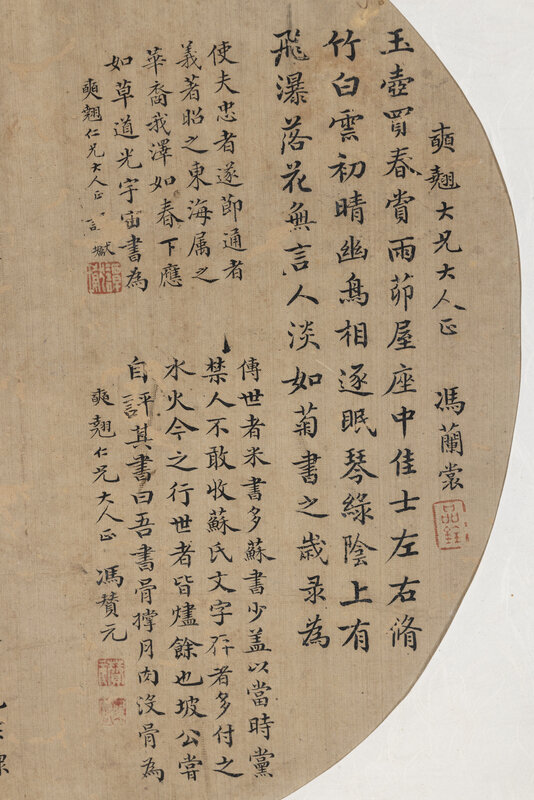 玉壺買春賞雨茆屋座中佳士左右脩
竹白雲初晴幽鳥相逐眠琴綠陰上有
飛瀑落花無言人淡如菊書之歲录為
奭翹大兄大人正 馮蘭裳
使夫忠者遂節通者
義著昭之東海属之
華裔我澤如春下應
如草道光宇宙書為
奭翹仁兄大人正
傳世者米書多蘇書少盖以當時黨
禁人不敢收蘇氏文字存者多付之
水火今之行世者皆燼餘也坡公嘗
自評其書曰吾書骨撑肉肉没骨為
奭翹仁兄大人正 馮贊元